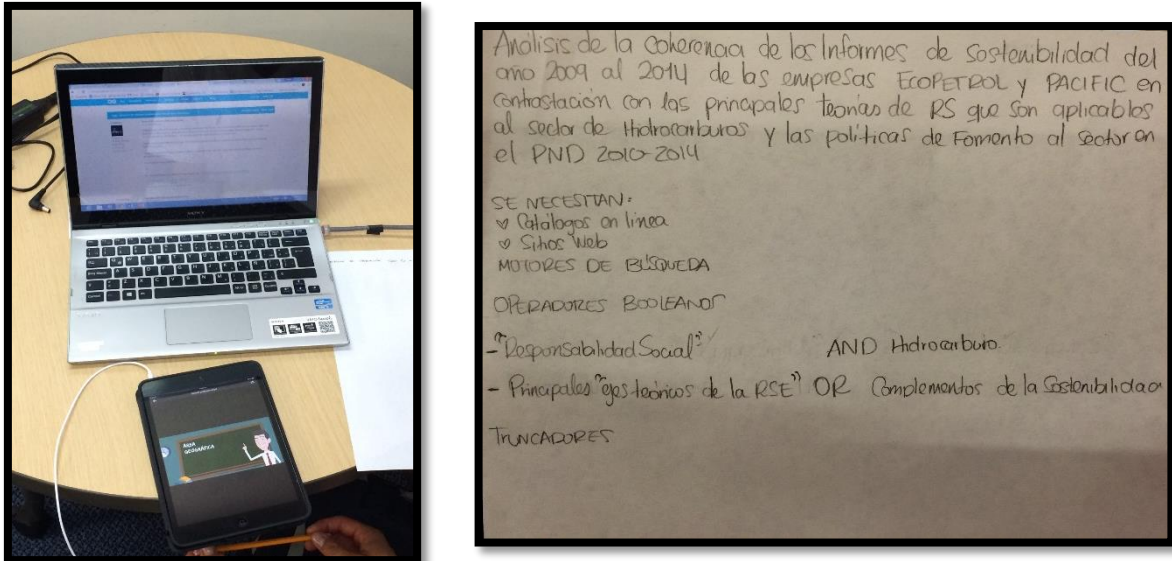 SONY
ÁREA
GEOGRÁFICA
Análisis de la coherencia de los Informes de Sostenibilidad del
año 2009 al 2014 de las empresas ECOPETROL y PACIFIC en
contrastación con las principales teorías de RS que son aplicables
al sector de Hidrocarburos y las políticas de Fomento al sector en
el PND 2010-2014
SE NECESITAN:
Catálogos en linea
Sitios Web
MOTORES DE BÚSQUEDA
OPERADORES BOOLEANOS
- "Responsabilidad Social" AND Hidrocarburo.
- Principales "ejes teóricos de la RSE" OR Complementos de la Sostenibilidad
TRUNCADORES